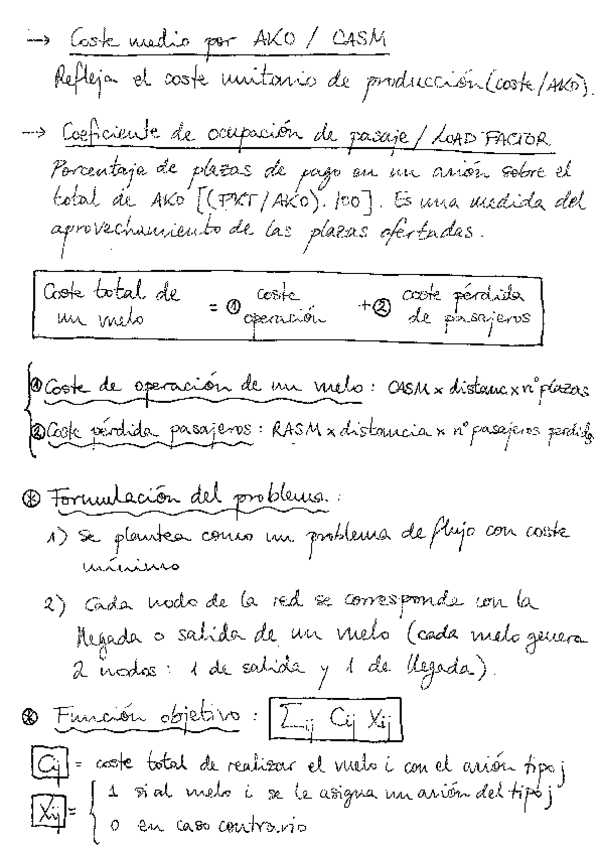 --> Coste medio por AKO / CASM
Refleja el coste unitario de producción (coste/AKO).
--> Coeficiente de ocupación de pasaje / LOAD FACTOR
Porcentaje de plazas de pago en un avión sobre el
total de AKO [(PKT/AKO). 100]. Es una medida del
aprovechamiento de las plazas ofertadas.
Coste total de un vuelo = ① coste operación + ② coste pérdida de pasajeros
① Coste de operación de un vuelo : CASM x distanc x nº plazas
② Coste pérdida pasajeros : RASM x distancia x nº pasajeros perdido
⊛ Formulación del problema :
1) Se plantea como un problema de flujo con coste
mínimo
2) Cada nodo de la red se corresponde con la
llegada o salida de un vuelo (cada vuelo genera
2 nodos : 1 de salida y 1 de llegada).
⊛ Función objetivo : Σij Cij Xij
Cij = coste total de realizar el vuelo i con el avión tipo j
Xij = { 1 si al vuelo i se le asigna un avión del tipo j
0 en caso contrario